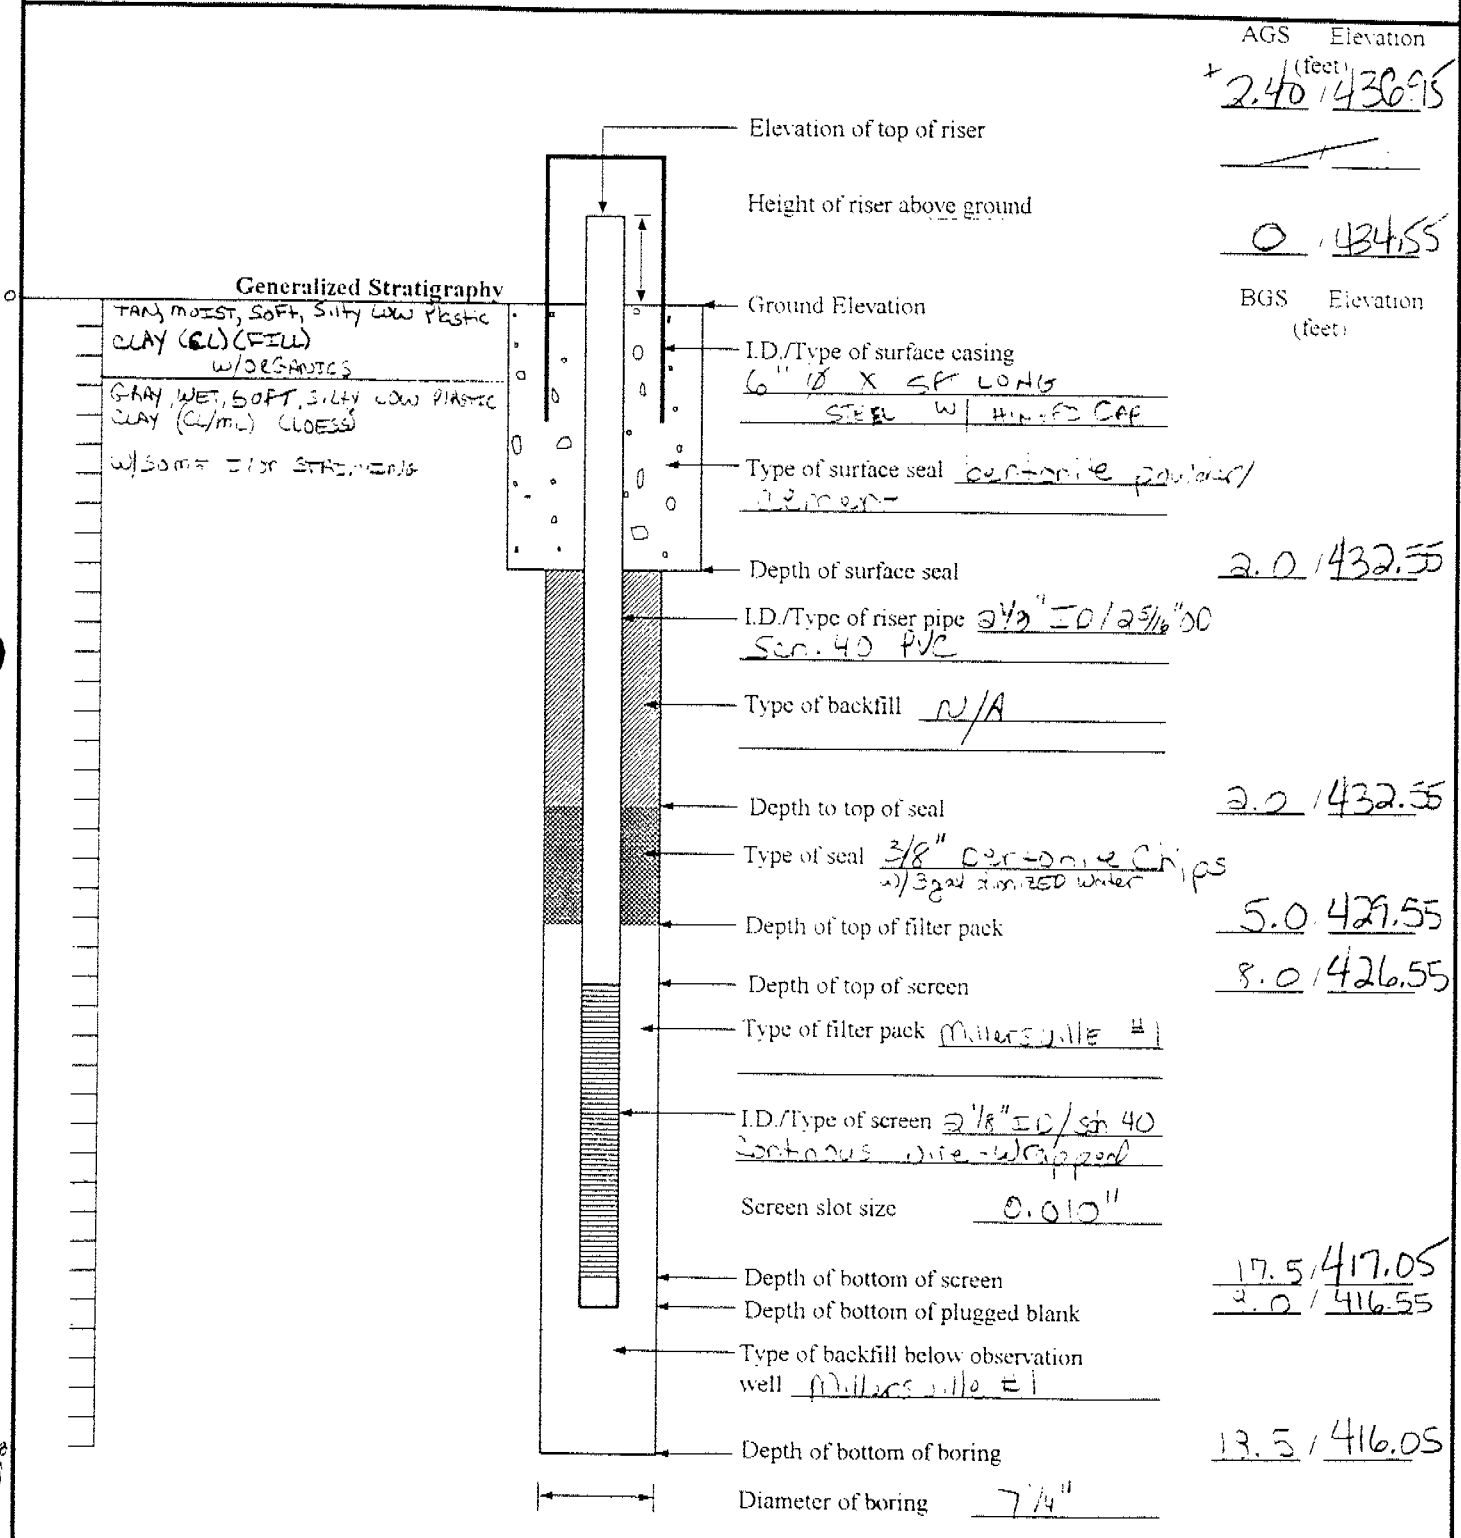 AGS Elevation
(feet)
+ 2.40 / 436.95
Elevation of top of riser
Height of riser above ground
0 / 434.55
Generalized Stratigraphy
0
TAN, MOIST, SOFT, Silty LOW Plastic
CLAY (CL) (FILL)
W/ORGANICS
GRAY, WET, SOFT, SILTY LOW PLASTIC
CLAY (CL/ML) (LOESS)
W/SOME
Ground Elevation
BGS Elevation
(feet)
I.D./Type of surface casing
6" Ø X 5F LONG
STEEL W/ CAP
Type of surface seal bentonite powder/
cement
Depth of surface seal 2.0 / 432.55
I.D./Type of riser pipe 2 1/2" ID / 2 5/16" OD
Sch. 40 PVC
Type of backfill N/A
Depth to top of seal 2.0 / 432.55
Type of seal 3/8" bentonite Chips
w/ 3 gal Water
Depth of top of filter pack 5.0 429.55
Depth of top of screen 8.0 / 426.55
Type of filter pack Millersville #1
I.D./Type of screen 2 1/8" ID / sch 40
Continous wire-Wrapped
Screen slot size 0.010"
Depth of bottom of screen 17.5 / 417.05
Depth of bottom of plugged blank / 416.55
Type of backfill below observation
well Millersville #1
Depth of bottom of boring / 416.05
Diameter of boring 7 1/4"